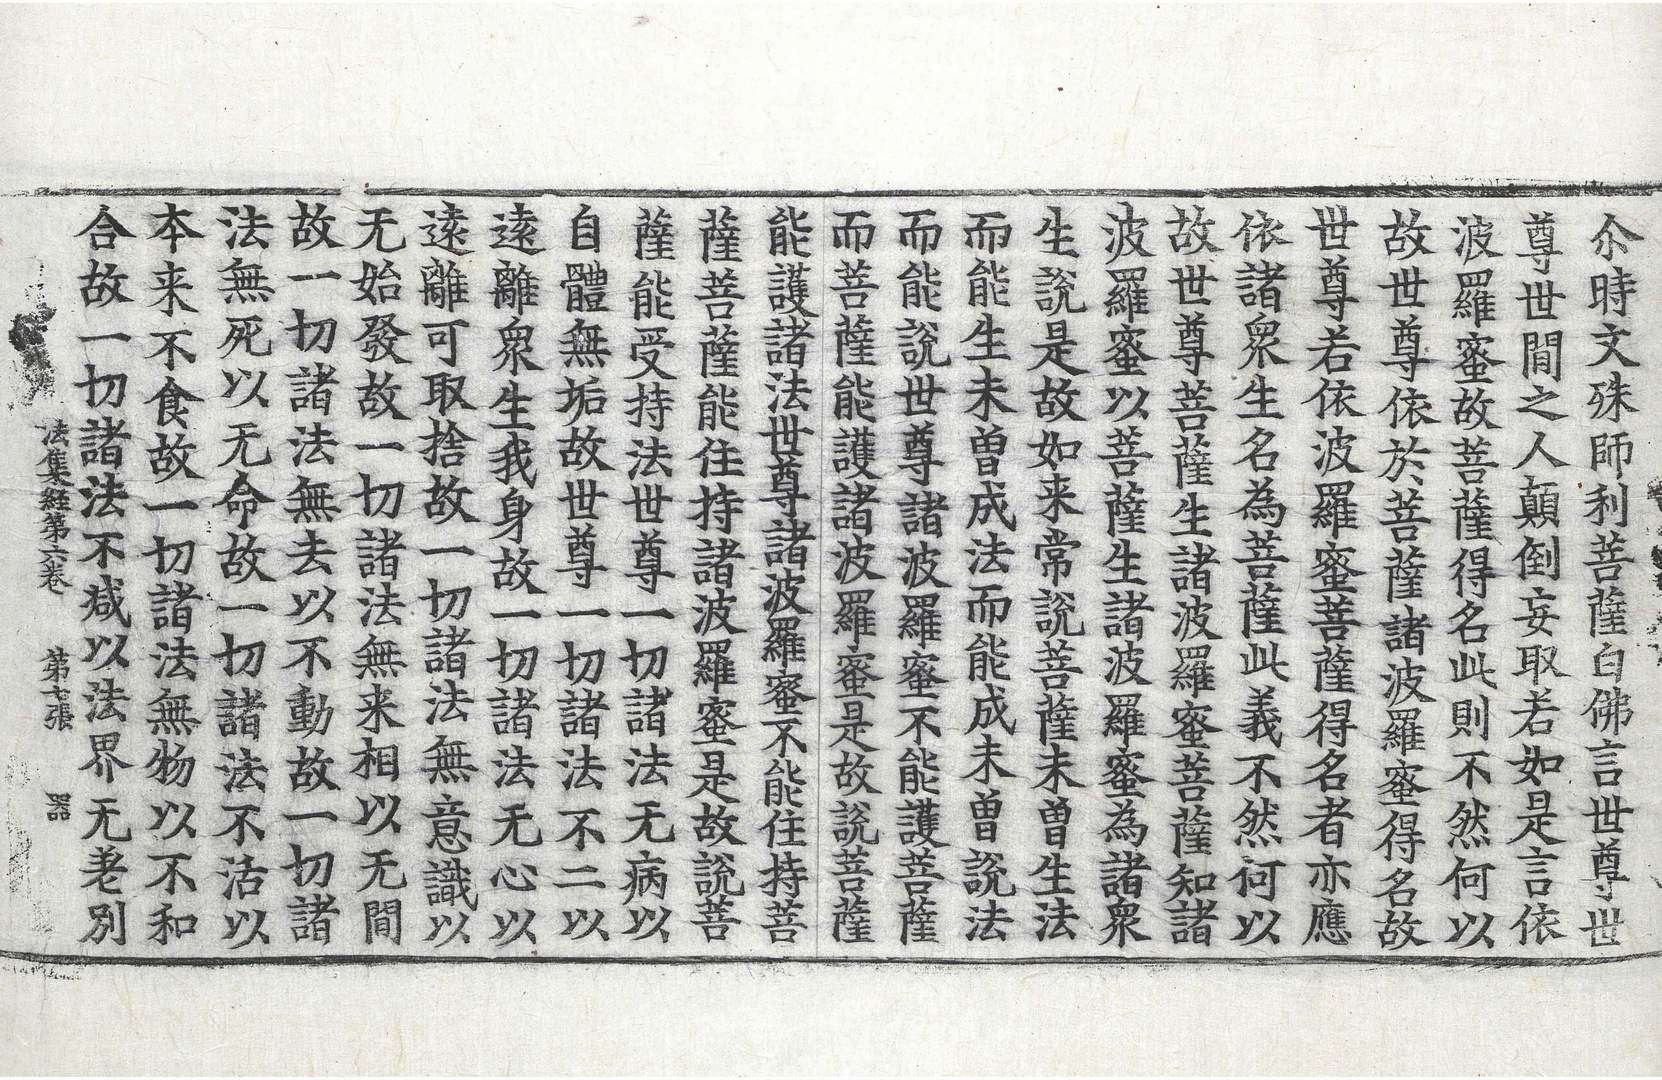 尒時文殊師利菩薩白佛言世尊世
尊世間之人顛倒妄取若如是言依
波羅蜜故菩薩得名此則不然何以
故世尊依於菩薩諸波羅蜜得名故
世尊若依波羅蜜菩薩得名者亦應
依諸衆生名為菩薩此義不然何以
故世尊菩薩生諸波羅蜜菩薩知諸
波羅蜜以菩薩生諸波羅蜜為諸衆
生說是故如来常說菩薩未曽生法
而能生未曽成法而能成未曽說法
而能說世尊諸波羅蜜不能護菩薩
而菩薩能護諸波羅蜜是故說菩薩
能護諸法世尊諸波羅蜜不能住持菩
薩菩薩能住持諸波羅蜜是故說菩
薩能受持法世尊一切諸法无病以
自體無垢故世尊一切諸法不二以
遠離衆生我身故一切諸法无心以
遠離可取捨故一切諸法無意識以
无始發故一切諸法無来相以无間
故一切諸法無去以不動故一切諸
法無死以无命故一切諸法不活以
本来不食故一切諸法無物以不和
合故一切諸法不减以法界无差別
法集経第六卷 第七張 器